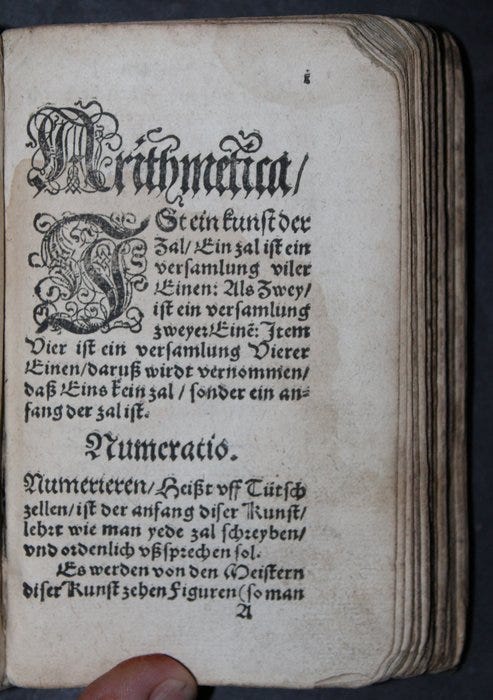 i
Arithmetica/
ISt ein kunst der
Zal/ Ein zal ist ein
versamlung viler
Einen: Als Zwey/
ist ein versamlung
zweyer Einẽ: Item
Vier ist ein versamlung Vierer
Einen/ daruß wirdt vernommen/
daß Eins kein zal / sonder ein an⸗
fang der zal ist.
Numeratio.
Numerieren/ Heißt vff Tütsch
zellen/ ist der anfang diser Kunst/
lehrt wie man yede zal schreyben/
vnd ordenlich vßsprechen sol.
Es werden von den Meistern
diser Kunst zehen Figuren (so man
A